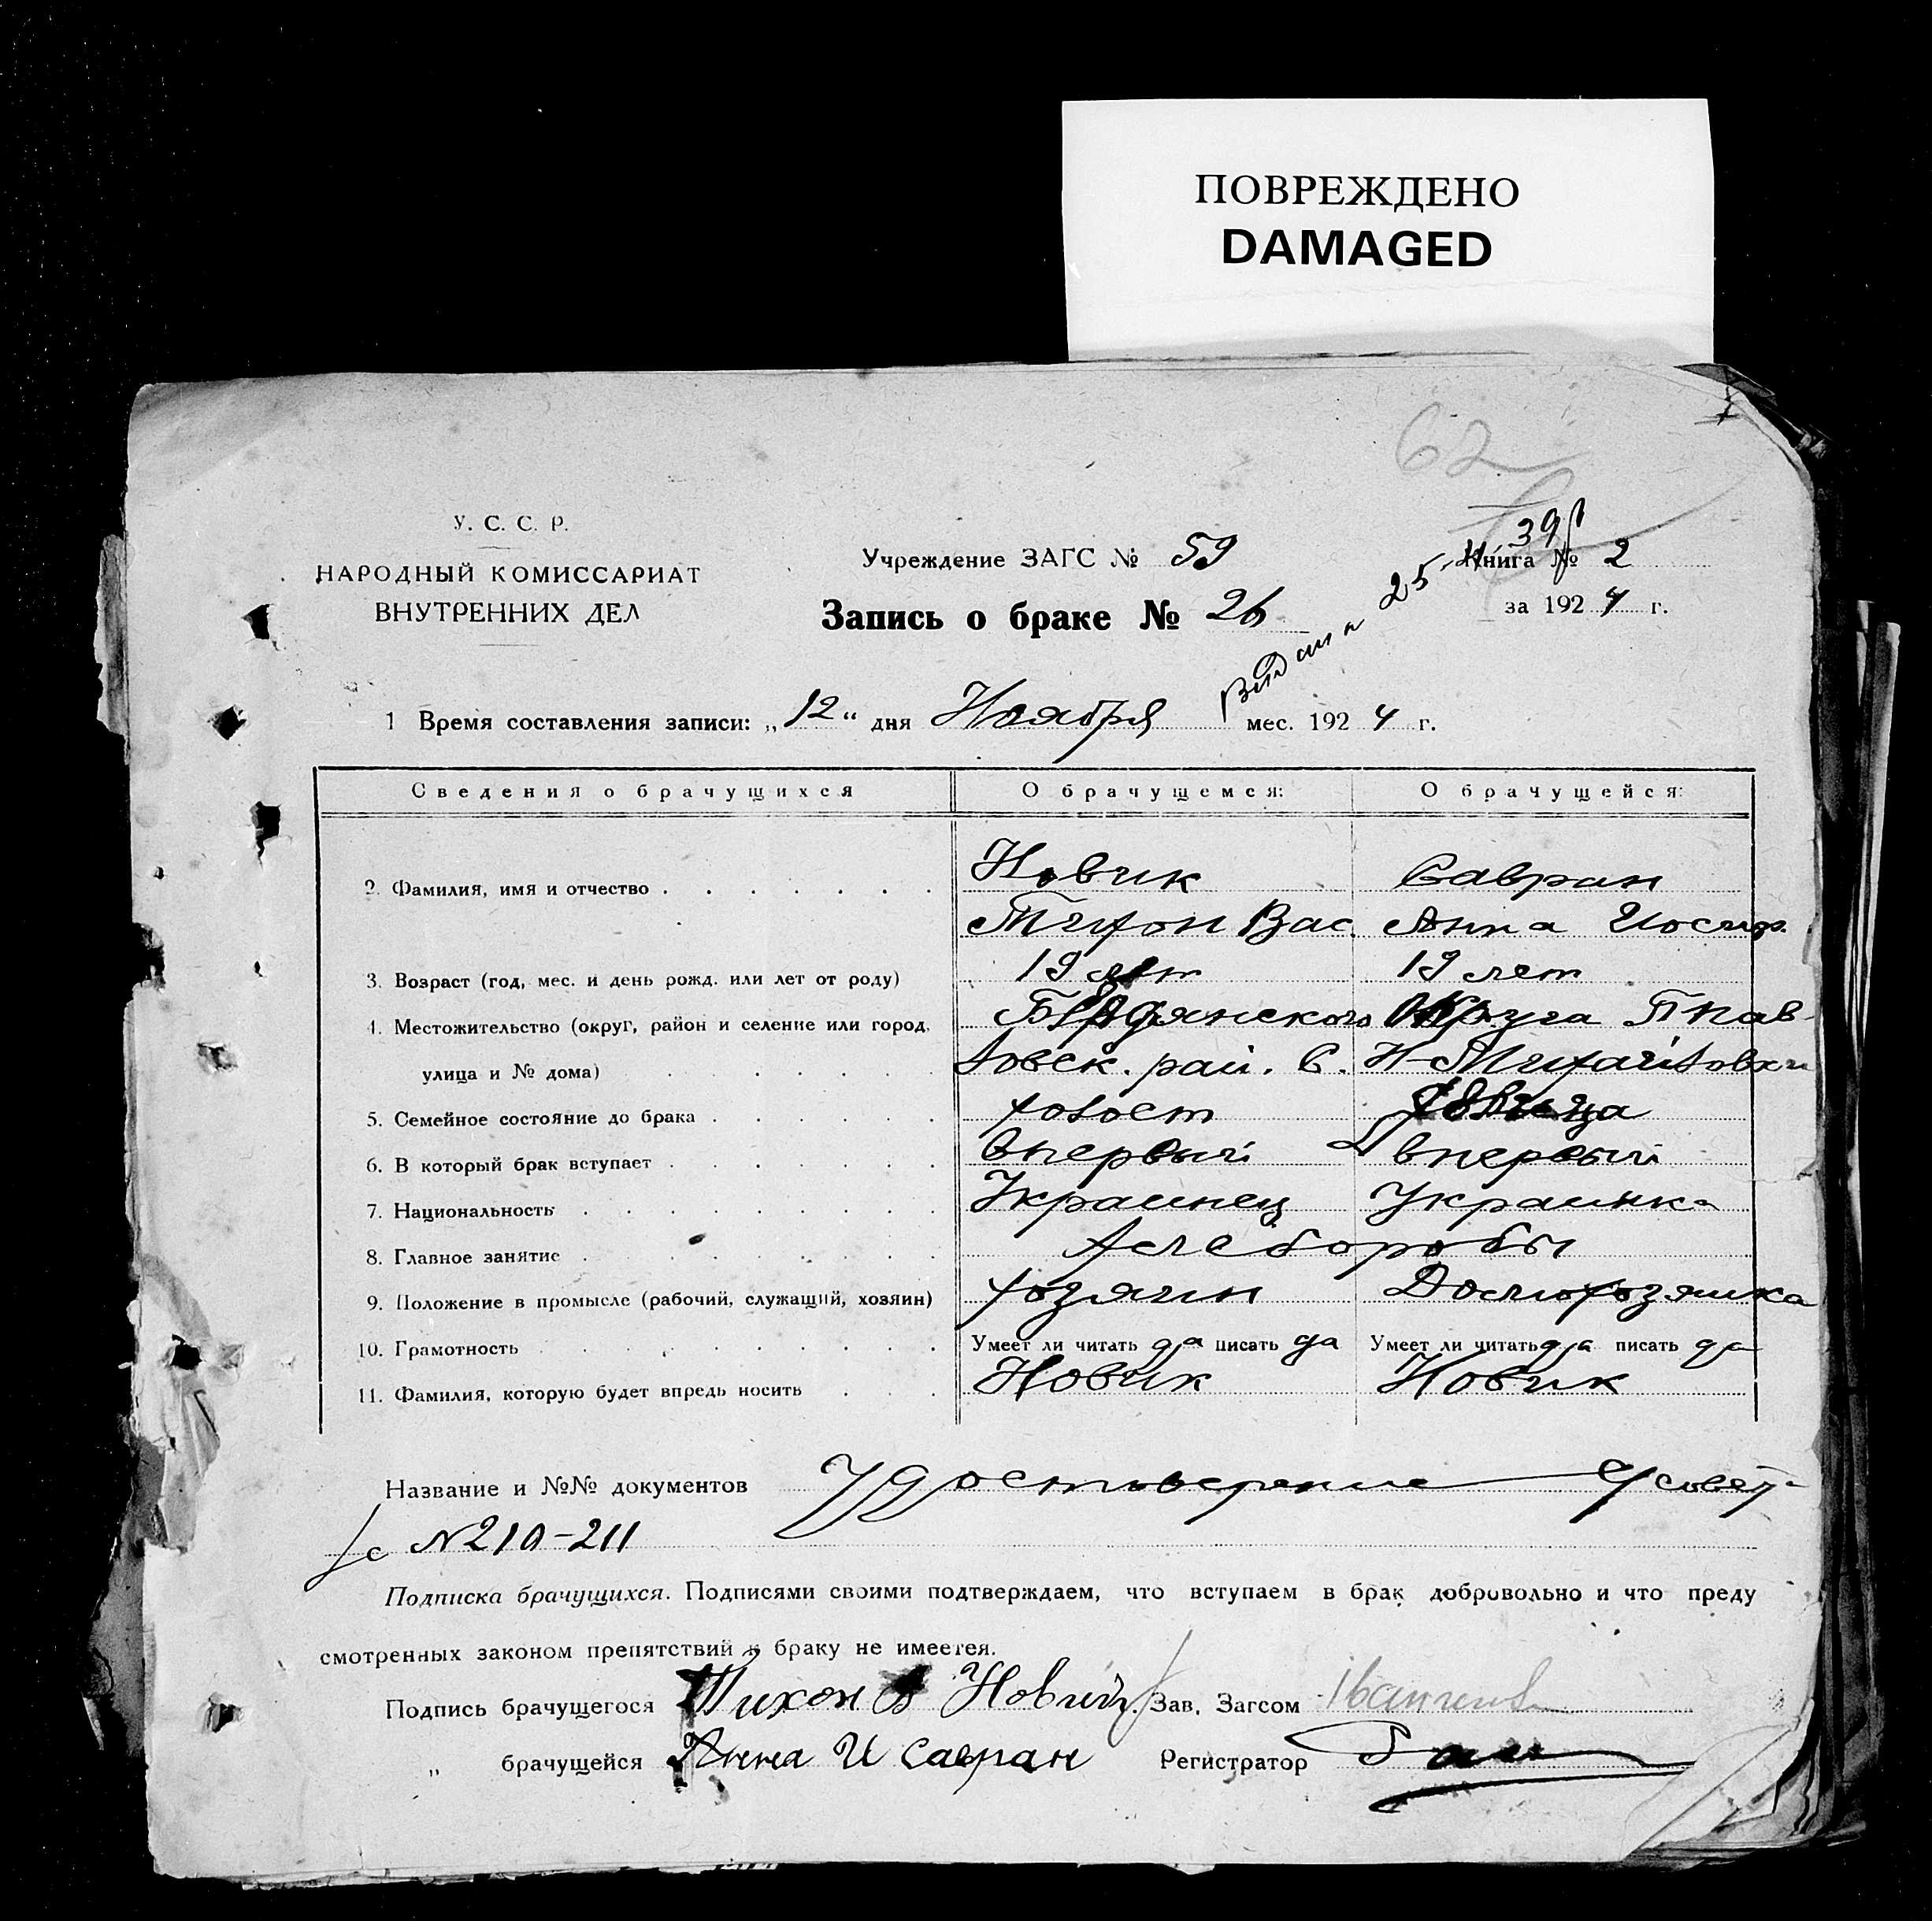 ПОВРЕЖДЕНО
DAMAGED
62
У. С. С. Р.
НАРОДНЫЙ КОМИССАРИАТ
ВНУТРЕННИХ ДЕЛ
Учреждение ЗАГС № 59
Книга № 2
за 1924 г.
Запись о браке № 26
1 Время составления записи: „12“ дня Ноября мес. 1924 г.
Сведения о брачущихся О брачущемся: О брачущейся:
2. Фамилия, имя и отчество Новик Савран
Тихон Вас. Анна Иосиф.
3. Возраст (год, мес. и день рожд. или лет от роду) 19 лет 19 лет
4. Местожительство (округ, район и селение или город, Бердянского Округа П пав-
улица и № дома) ловск. рай. С. Н-Михайловки
5. Семейное состояние до брака холост девица
6. В который брак вступает впервый впервый
7. Национальность Украинец Украинка
8. Главное занятие Хлеборобы
9. Положение в промысле (рабочий, служащий, хозяин) хозяин Домохозяйка
10. Грамотность Умеет ли читать да писать да Умеет ли читать да писать да
11. Фамилия, которую будет впредь носить Новик Новик
Название и №№ документов Удостоверение С/совет-
№ 210-211
Подписка брачущихся. Подписями своими подтверждаем, что вступаем в брак добровольно и что преду
смотренных законом препятствий к браку не имеется.
Подпись брачущегося Тихон В Новик Зав. Загсом
„ брачущейся Анна И Савран Регистратор